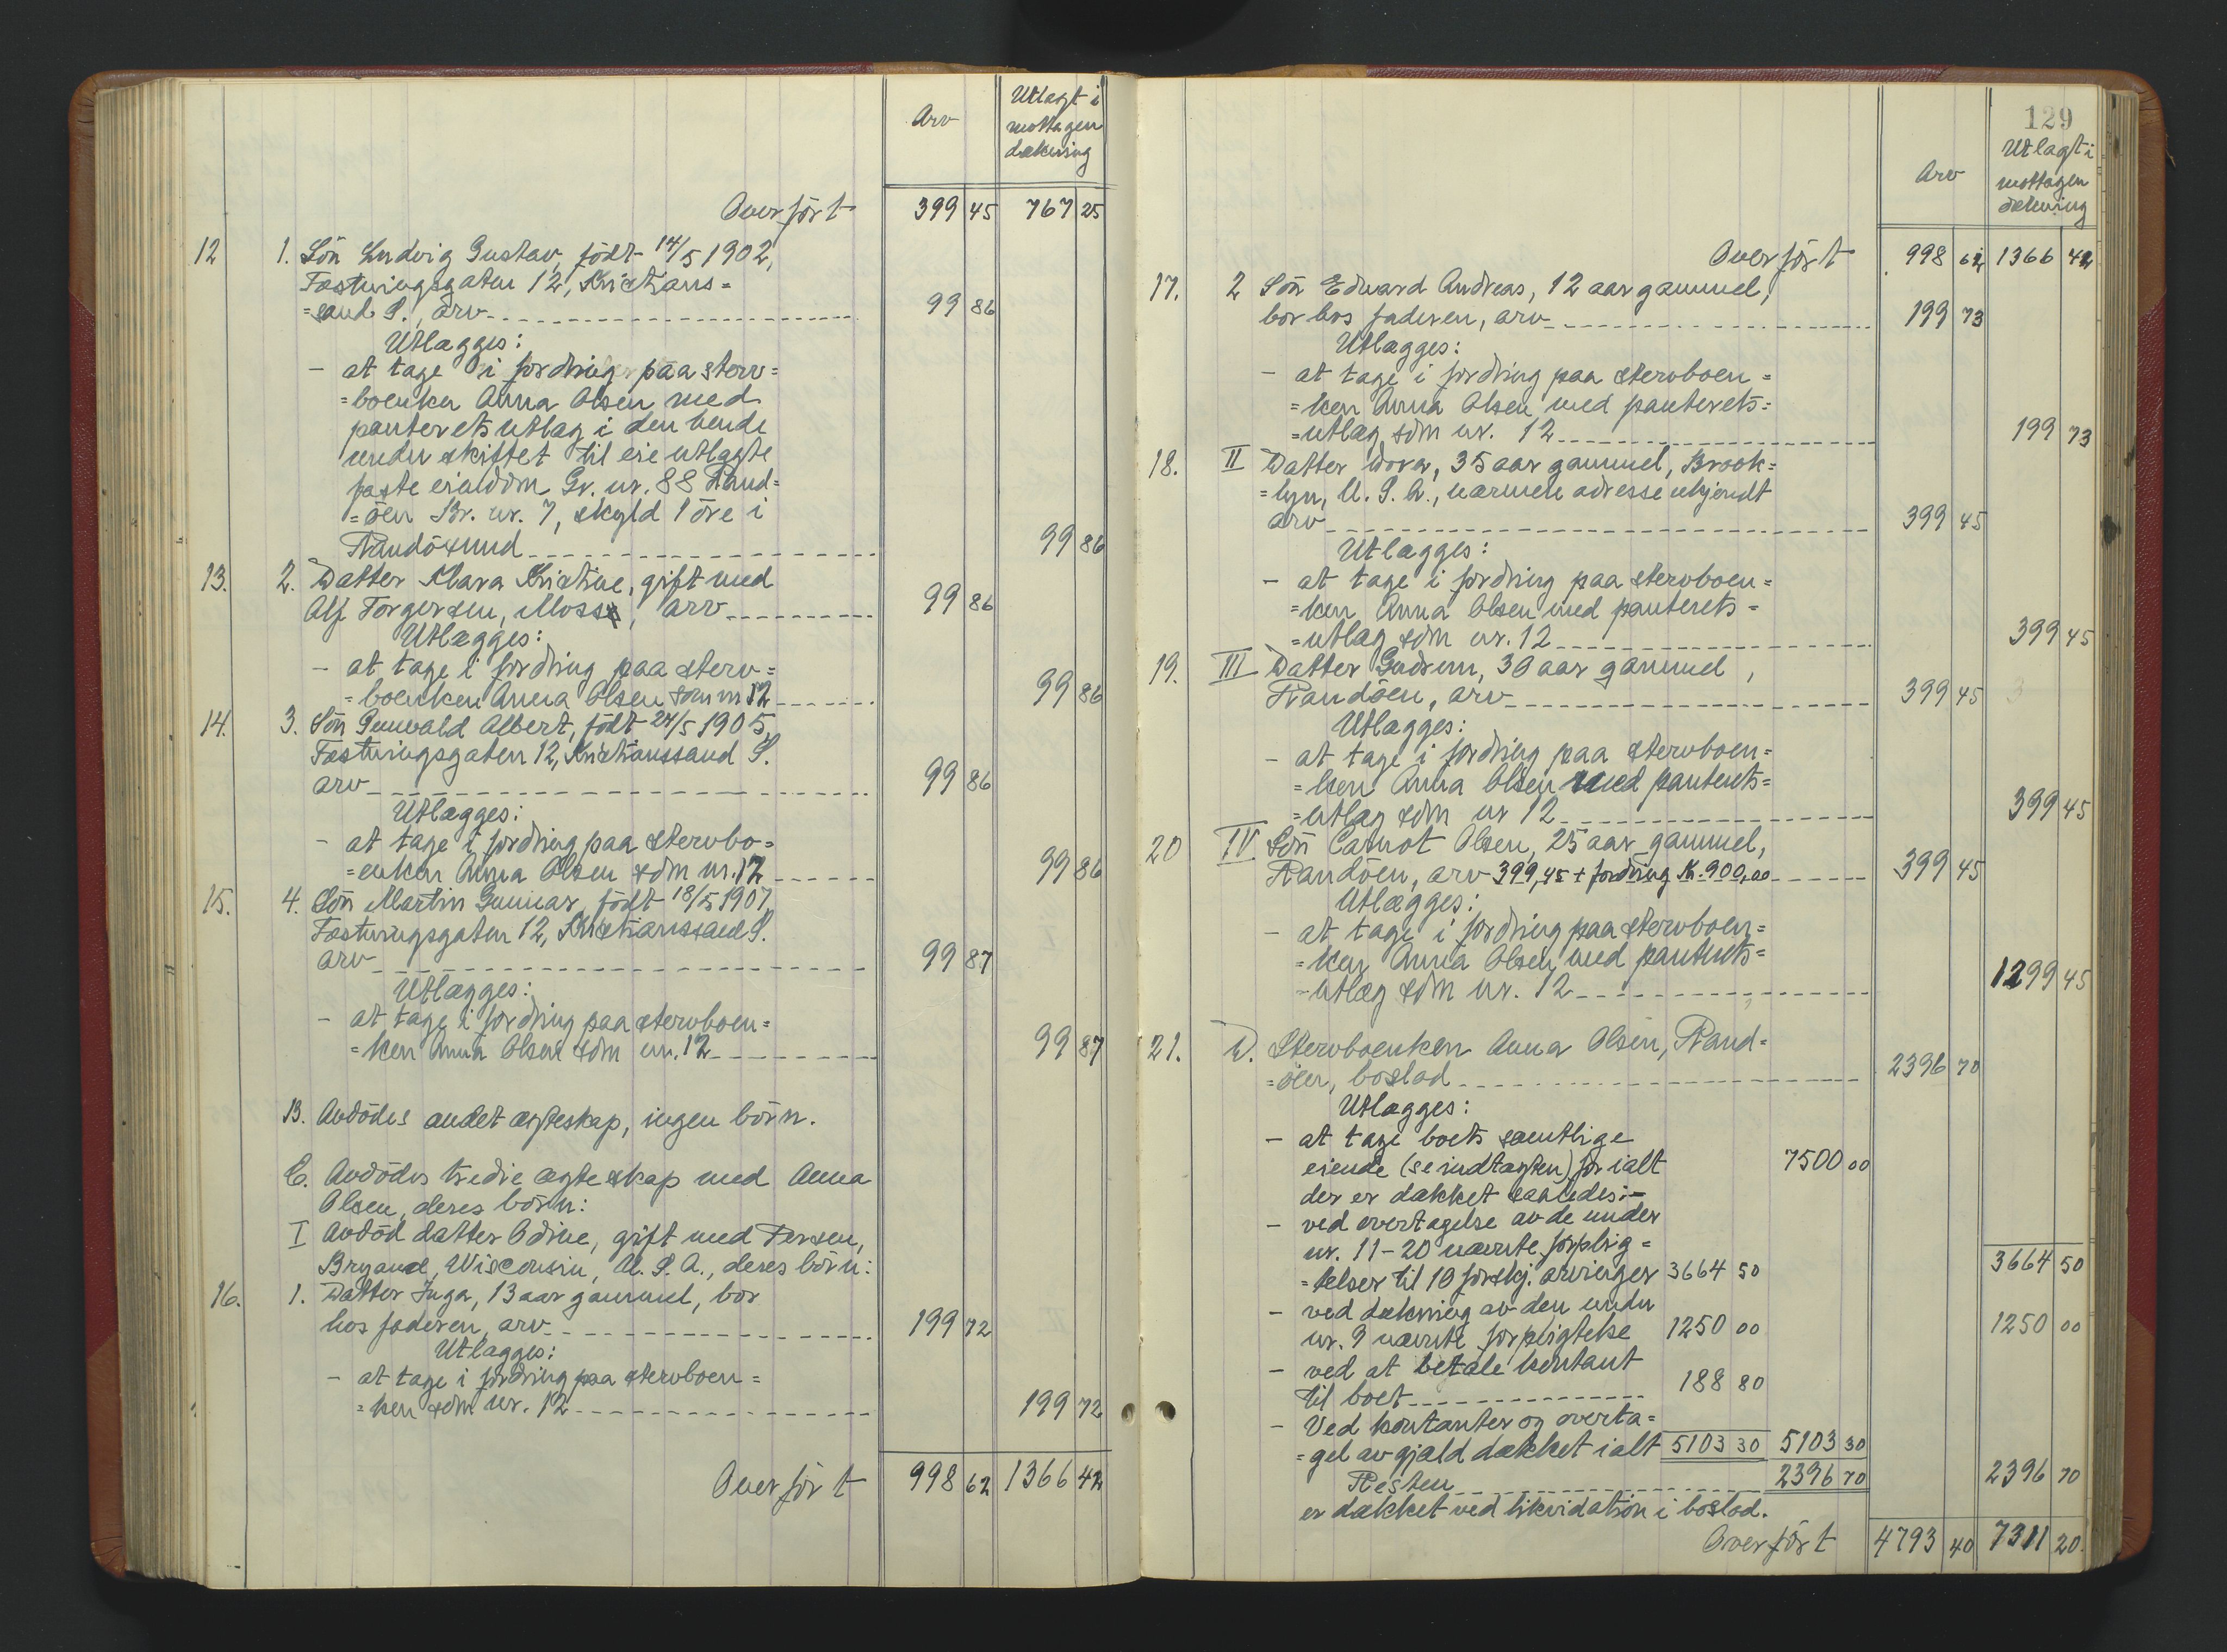 Arv
Utlagt i
mottagen
dækning
Overført 399 45 767 25
12 1. Sön Ludvig Gustav, födt 14/5 1902,
Fæstningsgaten 12, Kristians=
=sand S., arv 99 86
Utlægges:
- at tage i fordring paa sterv=
=boenken Anna Olsen med
panterets utlæg i den hende
under skiftet til eie utlagte
faste eiendom Gr. nr. 88 Rand=
=öen Br. nr. 7, skyld 1 öre i
Randösund 99 86
13. 2. Datter Klara Kristine, gift med
Alf Torgersen, Moss, arv 99 86
Utlægges:
- at tage i fordring paa sterv=
=boenken Anna Olsen som nr 12 99 86
14. 3. Sön Gunvald Albert, födt 24/5 1905,
Fæstningsgaten 12, Kristianssand S.
arv 99 86
Utlægges:
- at tage i fordring paa stervbo=
=enken Anna Olsen som nr. 12 99 86
15. 4. Sön Martin Gunnar, födt 18/5 1907,
Fæstningsgaten 12, Kristianssand S.
arv 99 87
Utlægges:
- at tage i fordring paa stervboen=
=ken Anna Olsen som nr. 12 99 87
B. Avdödes andet ægteskap, ingen börn.
C. Avdödes tredie ægteskap med Anna
Olsen, deres börn:
I Avdöd datter Odine, gift med Tersen,
Bryand, Wisconsin, U. S. A., deres börn:
16. 1. Datter Inga, 13 aar gammel, bor
hos faderen, arv 199 72
Utlægges:
- at tage i fordring paa stervboen=
=ken som nr. 12 199 72
Overfört 998 62 1366 42
129
Arv
Utlagt i
mottagen
dækning
Overfört 998 62 1366 42
17. 2 Sön Edward Andreas, 12 aar gammel,
bor hos faderen, arv 199 73
Utlægges:
- at tage i fordring paa stervboen=
=ken Anna Olsen med panterets=
=utlæg som nr. 12 199 73
18. II Datter Dora, 35 aar gammel, Brook=
=lyn, U. S. A., nærmere adresse ukjendt
arv 399 45
Utlægges:
- at tage i fordring paa stervboen=
=ken Anna Olsen med panterets=
=utlæg som nr. 12 399 45
19. III Datter Gudrun, 30 aar gammel,
Randöen, arv 399 45
Utlægges:
- at tage i fordring paa stervboen=
=ken Anna Olsen med panterets=
=utlæg som nr 12 399 45
20 IV Sön Carnot Olsen, 25 aar gammel,
Randöen, arv 399,45 + fordring K. 900,00 399 45
Utlægges:
- at tage i fordring paa stervboen=
=ken Anna Olsen med panterets=
=utlæg som nr. 12 1299 45
21. D. Stervboenken Anna Olsen, Rand=
=öen, boslod 2396 70
Utlægges:
- at tage boets samtlige
eiende (se indtægten) for ialt 7500 00
der er dækket saaledes:-
- ved overtagelse av de under
nr. 11-20 nævnte forplig=
=telser til 10 forskj. arvinger 3664 50 3664 50
- ved dækning av den under
nr. 9 nævnte forpligtelse 1250 00 1250 00
- ved at betale kontant
til boet 188 80
- Ved kontanter og overta=
=gel av gjæld dækket ialt 5103 30 5103 30
Resten 2396 70 2396 70
er dækket ved likvidation i boslod.
Overfört 4793 40 7311 20